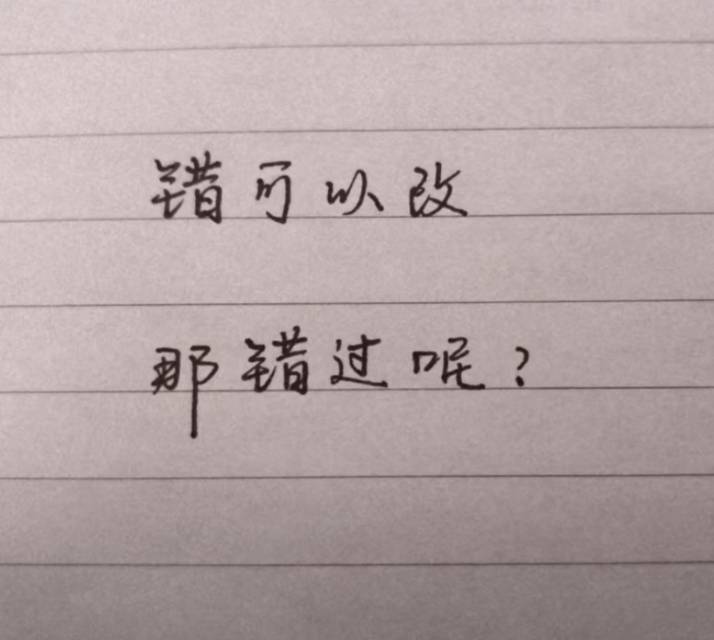 错可以改
那错过呢?